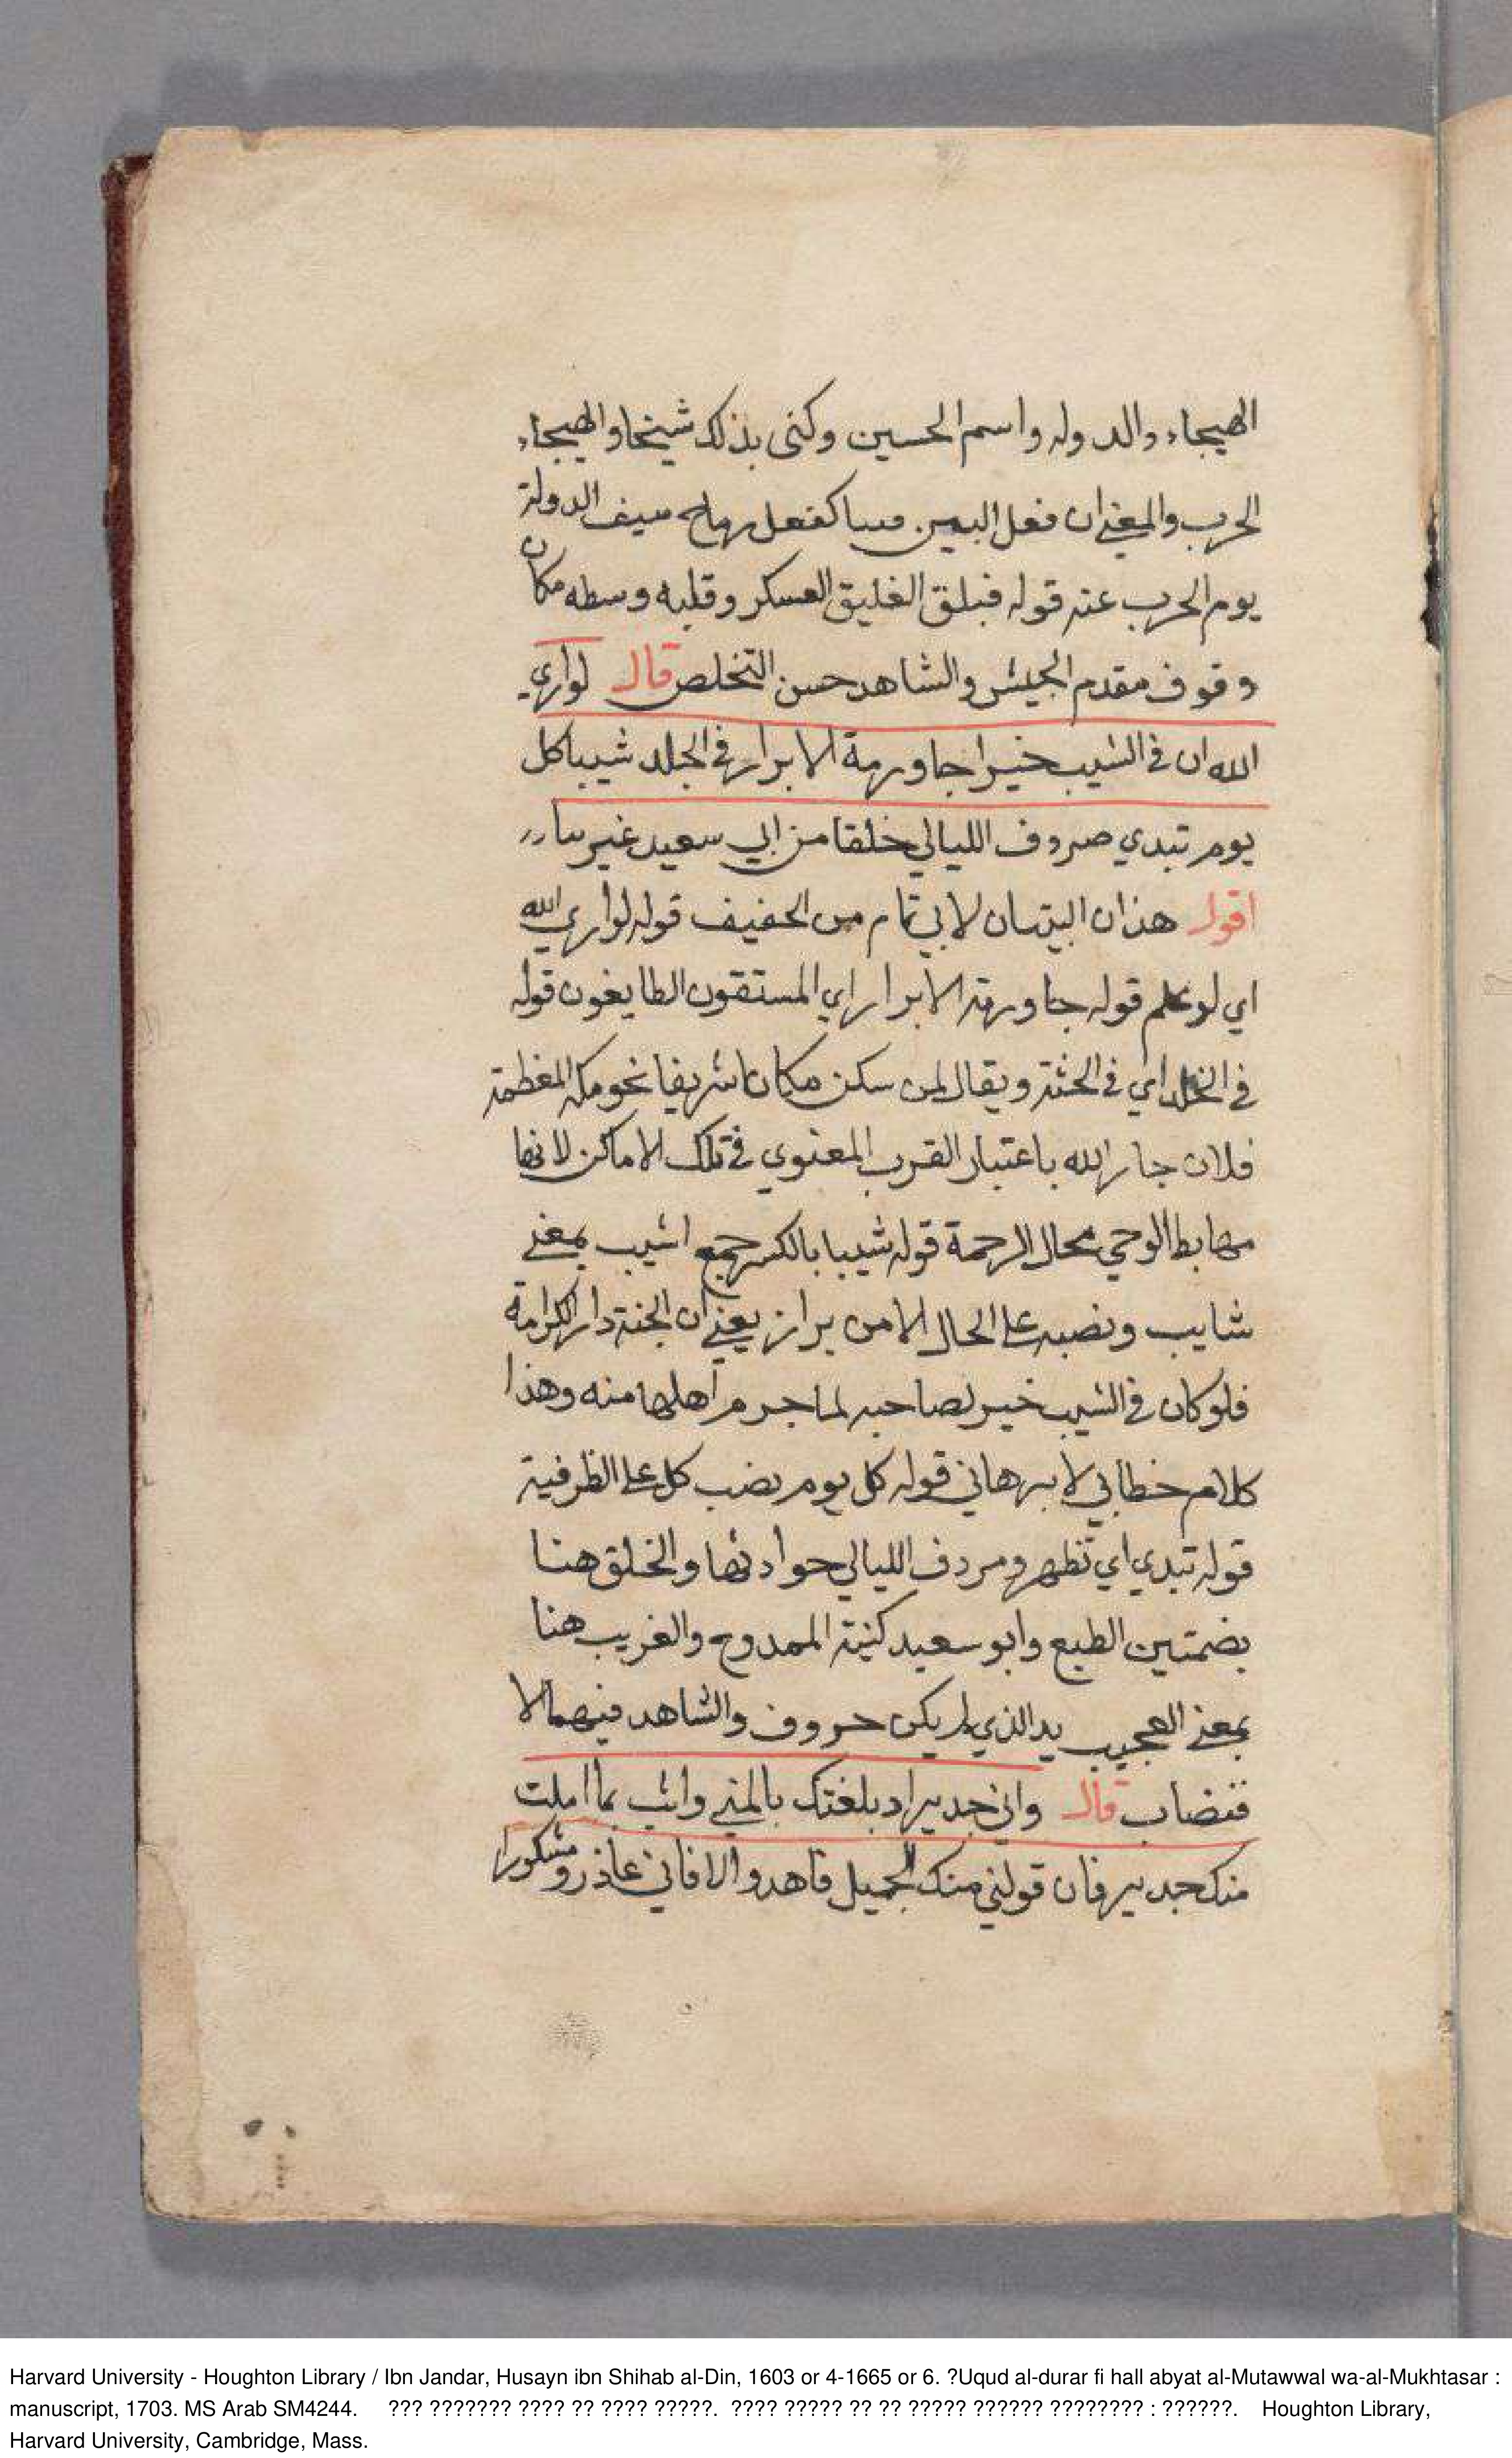 الهيجاء والد وله واسم الحسين وكنى بذلك شيخا والهيجاء
الحرب والمعنى ان فعل البين مسا كفعل رماح سيف الدولة
يوم الحرب عنه قوله فيلق الفليق العسكر وقلبه وسطه مكان
وقوف مقدم الجيش والشاهد حسن التخلص قال لوارى
الله ان في الشيب خيرا جاورته الابرار في الجلد شيبا كل
يوم تبدي صروف الليالي خلقا من ابي سعيد غير
اقول هذان البيتان لابي تمام من الخفيف قوله لوارى الله
اي لو علم قوله جاورته الابرار اي المستقون الطايعون قوله
في الخلد اي في الجنة ويقال لمن سكن مكانا شريفا نحو مكة المعظمة
فلان جار الله باعتبار القرب المعنوي في تلك الاماكن لانها
مهابط الوحي محال الرحمة قوله شيبا بالكسر جمع اشيب بمعنى
شايب ونصبه على الحال الامن براز يعني ان الجنة دار الكرامة
فلو كان في الشيب خير لصاحبه لما جرم اهلها منه وهذا
كلام خطابي لا برهاني قوله كل يوم نصب كل على الظرفية
قوله تبدي اي تظهر ومردف الليالي حوادثها والخلق هنا
بضمتين الطبع وابو سعيد كنية الممدوح والغريب هنا
بمعنى العجيب يد الذي لم يكن حروف والشاهد فيهما الا
قتضاب قال واني جدير اد بلغتك بالمنى وانت بما املت
منك جدير فان تولني منك الجميل فاهدو الا فاني عاذر ومشكورا
Harvard University - Houghton Library / Ibn Jandar, Husayn ibn Shihab al-Din, 1603 or 4-1665 or 6. ?Uqud al-durar fi hall abyat al-Mutawwal wa-al-Mukhtasar :
manuscript, 1703. MS Arab SM4244. ??? ??????? ???? ?? ???? ?????. ???? ????? ?? ?? ????? ?????? ???????? : ??????. Houghton Library,
Harvard University, Cambridge, Mass.